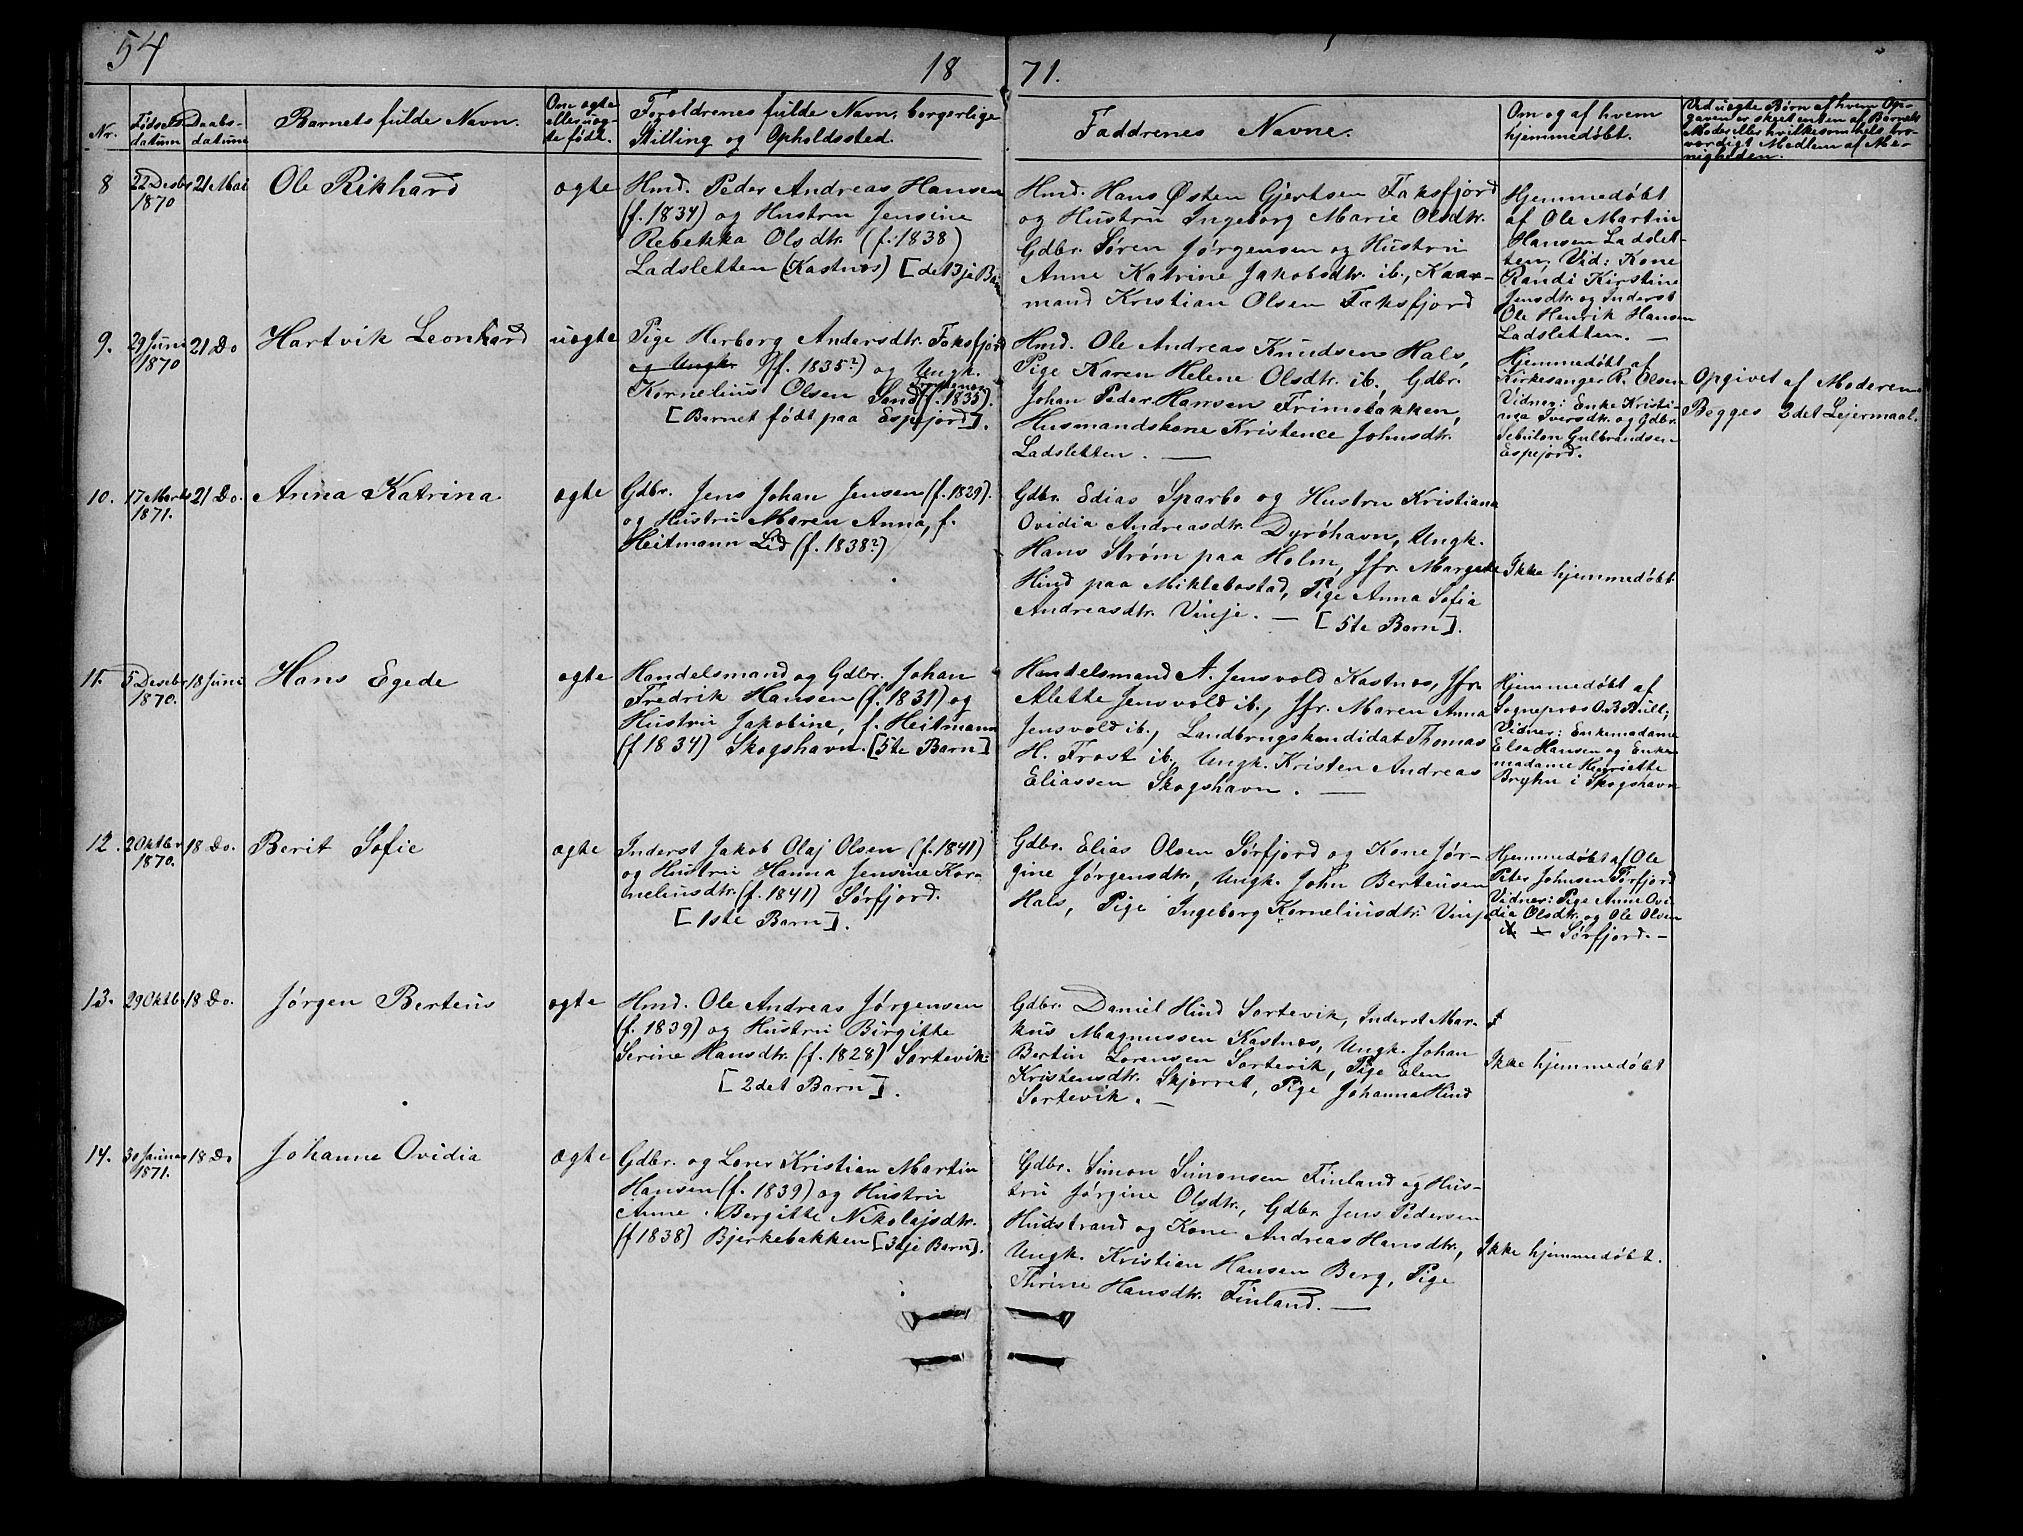 54
18 71.
Nr.
Fødsels-
datum
Daabs-
datum
Barnets fulde Navn.
Om ægte
eller uæg-
te født.
Foræeldrenes fulde Navn, borgerlige
Stilling og Opholdssted.
Faddrenes Navne.
Om og af hvem
hjemmedøbt.
Ved uægte Børn af hvem Op-
gaven er skeet enten af Barnets
Moder eller hvilketsomhelst tro-
værdigt Medlem af Me-
nigheden.
8
22 Desbr
1870
21 Mai
Ole Rikhard
ægte
Hmd. Peder Andreas Hansen
(f. 1834) og Hustru Jensine
Rebekka Olsdtr. (f. 1838)
Ladsletten (Kastnæs) [det 3je Barn
Hmd. Hans Østen Gjertsen Faksfjord
og Hustru Ingeborg Marie Olsdtr.
Gdbr. Søren Jørgensen og Hustru
Anne Katrine Jakobsdtr. ib., Kaar-
mand Kristian Olsen Faksfjord
Hjemmedøbt
af Ole Martin
Hansen Ladslet-
ten, Vid: Kone
Randi Kirstine
Jensdtr. og Inderst
Ole Henrik Hansen
Ladsletten. —
9.
29 Juni
1870
21 Do
Hartvik Leonhard
uægte
Pige Herborg Andersdtr. Faksfjord
og Ungk. (f. 1835?) og Ungk.
Kornelius Olsen Sand (f. 1835).
[Barnet født paa Espejord].
Hmd. Ole Andreas Knudsen Hals,
Pige Karen Helene Olsdtr. ib., Gdbr.
Johan Peder Hansen Frimstakken,
Husmandskone Kristence Johnsdtr.
Ladsletten. —
Hjemmedøbt af
Kirkesanger R. Olsen
Vidner: Enke Kristi-
na Iversdtr. og Gdbr.
Sebulon Gulbrandsen
Espejord.
Opgivet af Moderen
Begges 2det Lejermaal.
10.
17 Marts
1871.
21 Do.
Anna Katrina
ægte
Gdbr. Jens Johan Jensen (f. 1829).
og Hustru Maren Anna, f.
Heitmann Lid (f. 1838?)
Gdbr. Edias Sparbo og Hustru Kristiana
Ovidia Andreasdtr. Dyrøhavn, Ungk.
Hans Strøm paa Holm, Jfr. Margrete
Hind paa Miklebostad, Pige Anna Sofia
Andreasdtr. Vinje. — [5te Barn].
Ikke hjemmedøbt
11.
5 Desbr
1870.
18 Juni
Hans Egede
ægte
Handelsmand og Gdbr. Johan
Fredrik Hansen (f. 1831) og
Hustru Jakobine, f. Heitmann
(f 1834) Skogshavn. [5te Barn]
Handelsmand A. Jensvold Kastnæs, Jfr.
Alette Jensvold ib., Jfr. Maren Anna
Jensvold ib., Landbrugskandidat Thomas
H. Frost ib., Ungk. Kristen Andreas
Eliassen Skogshavn. —
Hjemmedøbt af
Sognepræs O. B. Bull;
Vidner: Enkemadame
Elsa Hansen og Enke-
madame Henriette
Bryhn i Skogshavn
12.
2 Oktbr
1870.
18 Do.
Berit Sofie
ægte
Inderst Jakob Olaj Olsen (f. 1841)
og Hustru Hanna Jensine Kor-
neliusdtr. (f. 1841) Sørfjord.
[1ste Barn].
Gdbr. Elias Olsen Sørfjord og Kone Jør-
gine Jørgensdtr., Ungk. John Berteusen
Hals, Pige Ingeborg Korneliusdtr. Vinje
Hjemmedøbt af Ole
Peter Johnsen Sørfjord
Vidner: Pige Anne Ovi-
dia Olsdtr. og Ole Olsen
ib. — Sørfjord. —
13.
29 Oktbr
18 Do.
Jørgen Berteus
ægte
Hmd. Ole Andreas Jørgensen
(f. 1839) og Hustru Birgitte
Serine Hansdtr. (f. 1828) Sørtevik.
[2det Barn].
Gdbr. Daniel Hind Sørtevik, Inderst Mar-
kus Magnussen Kastnæs, Ungk. Johan
Bertin Lorensen Sørtevik, Pige Elen
Kristensdtr. Skjørret, Pige Johanna Hind
Sørtevik. —
Ikke hjemmedøbt
14.
30 Januar
1871.
18 Do
Johanne Ovidia
ægte
Gdbr. og Lærer Kristian Martin
Hansen (f. 1839) og Hustru
Anne Bergitte Nikolajsdtr.
(f 1838) Bjerkebakken [3dje Barn].
Gdbr. Simon Simonsen Finland og Hus-
tru Jørgine Olsdtr., Gdbr. Jens Pedersen
Hukstrand og Kone Andreas Hansdtr,
Ungk. Kristian Hansen Berg, Pige
Thrine Hansdtr. Finland. —
Ikke hjemmedøbt.